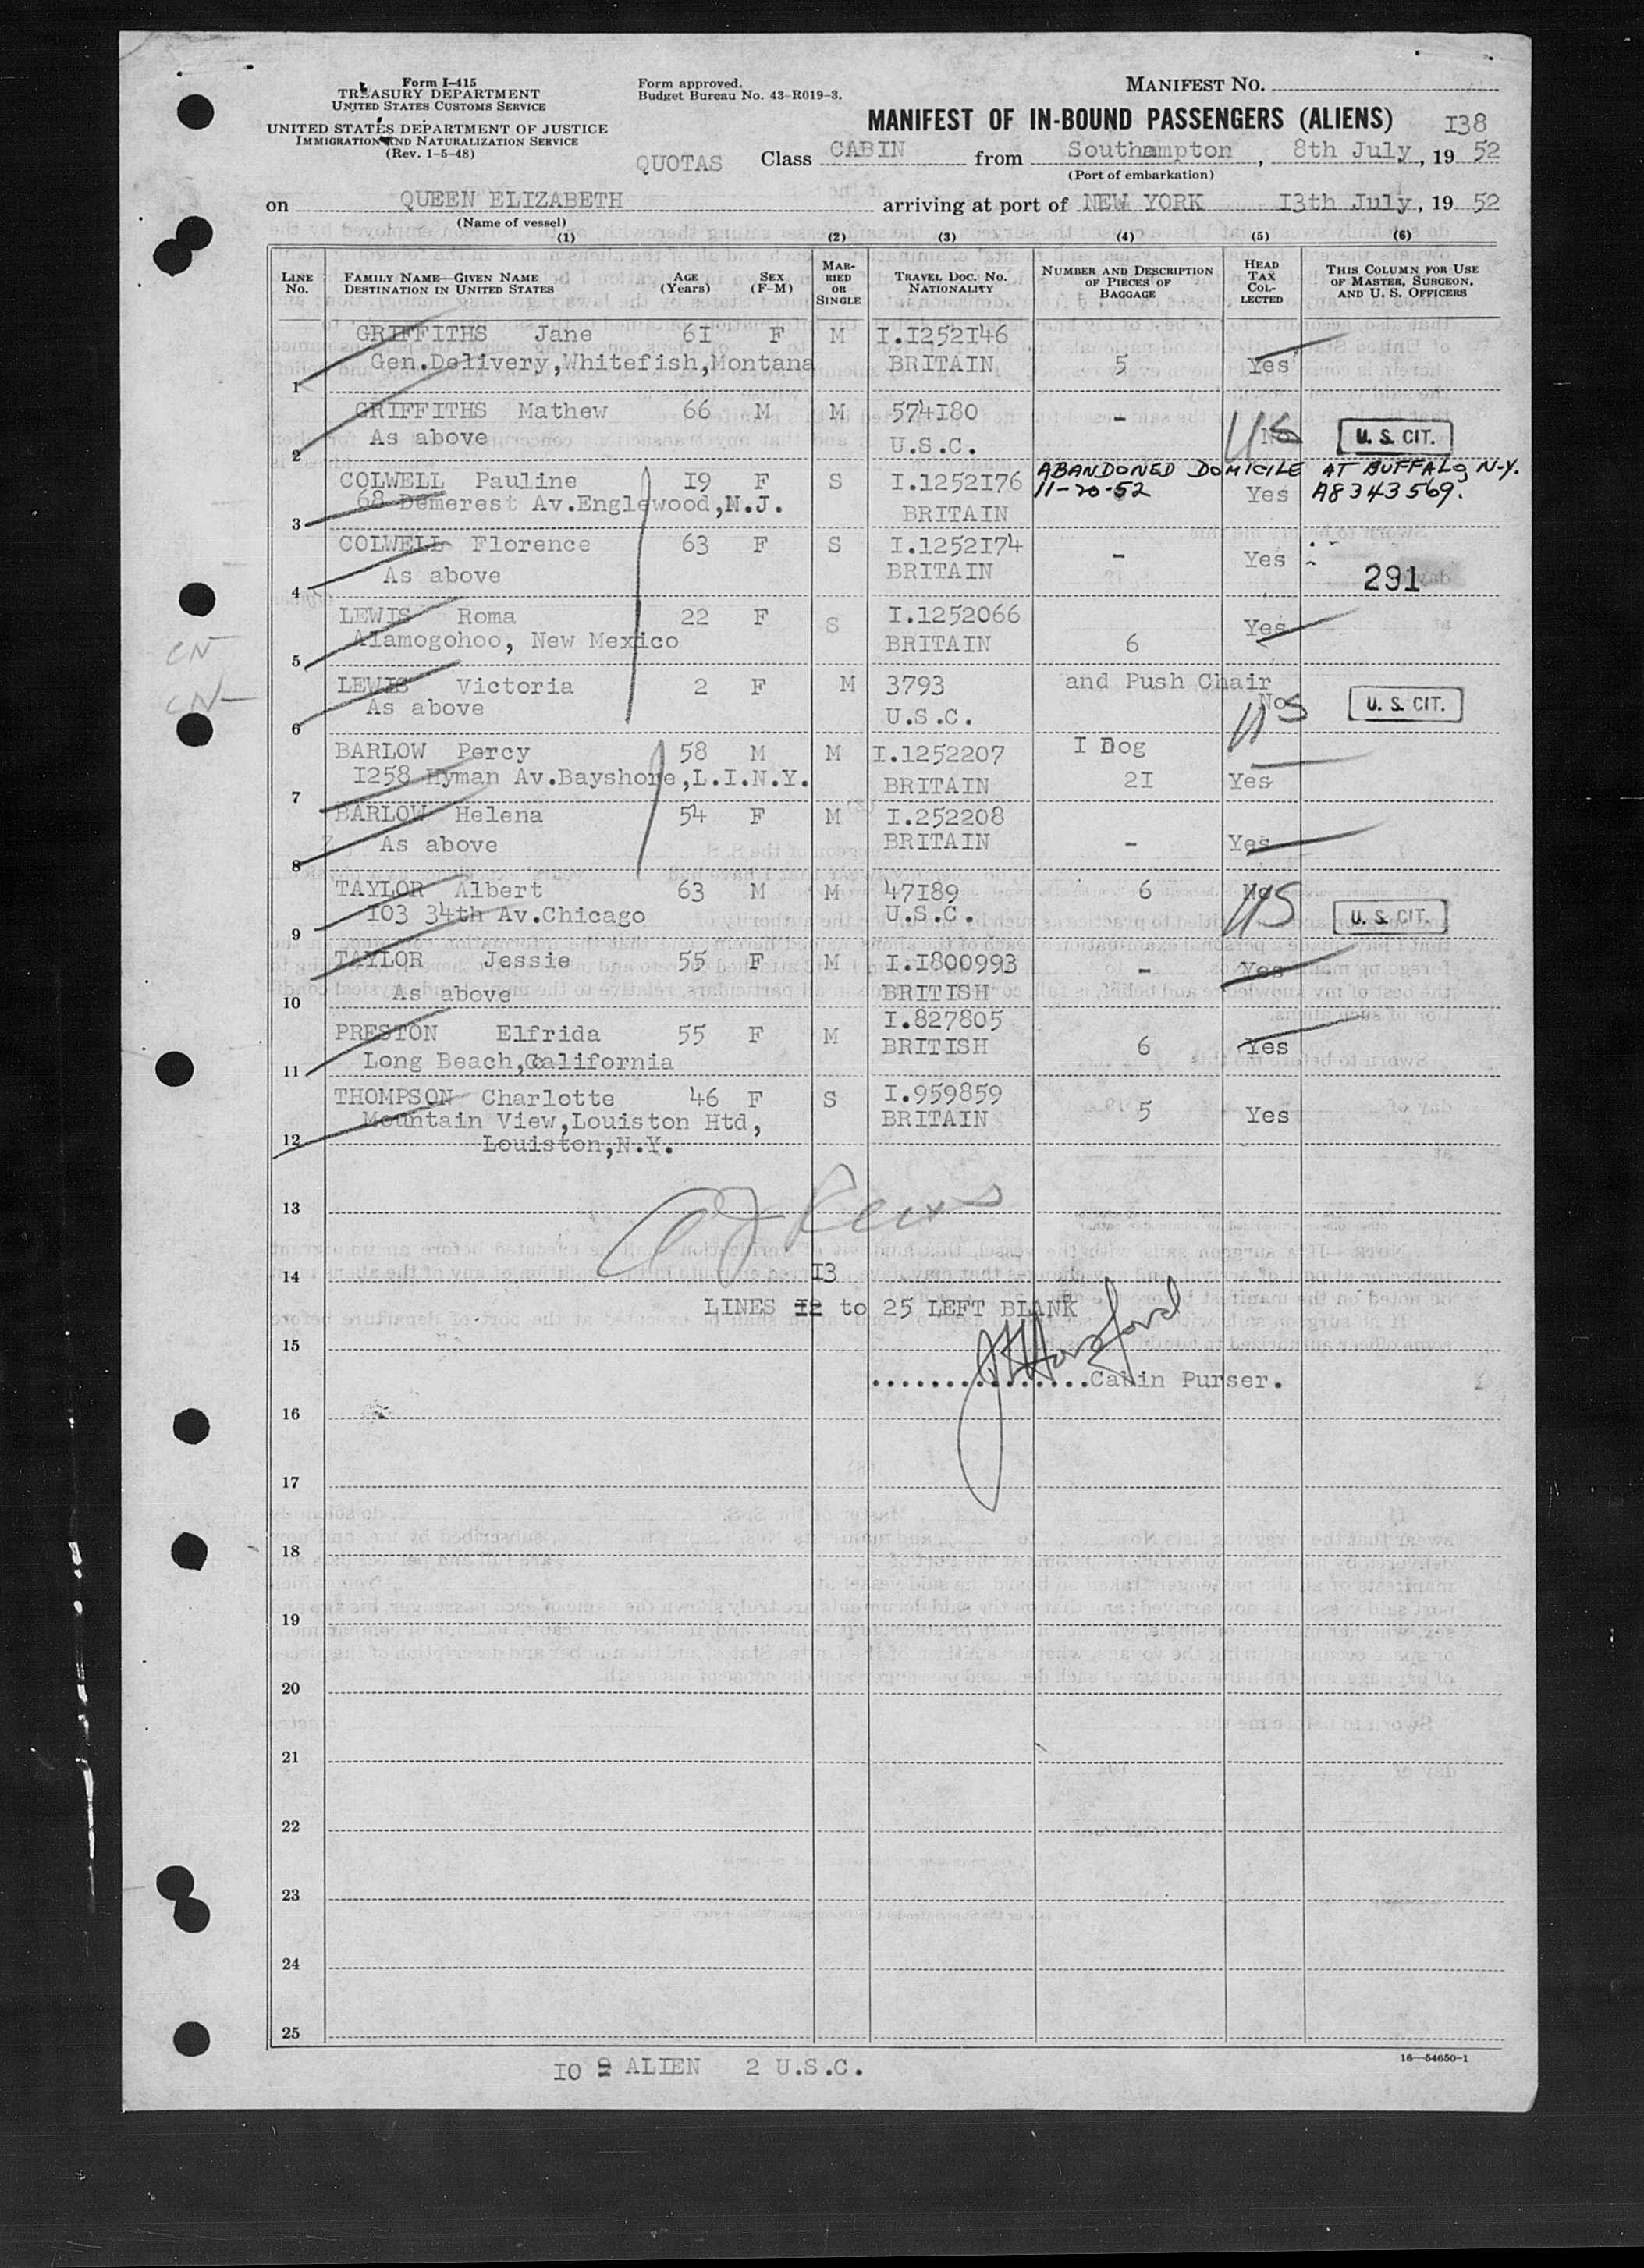 Form I-415
TREASURY DEPARTMENT
UNITED STATES CUSTOMS SERVICE
UNITED STATES DEPARTMENT OF JUSTICE
IMMIGRATION AND NATURALIZATION SERVICE
(Rev. 1-5-48)
Form approved.
Budget Bureau No. 43-R019-3.
MANIFEST NO.
MANIFEST OF IN-BOUND PASSENGERS (ALIENS) I38
QUOTAS Class CABIN from Southampton, 8th July, 19 52
(Port of embarkation)
on QUEEN ELIZABETH arriving at port of NEW YORK I3th July, 19 52
(Name of vessel)
(1) (2) (3) (4) (5) (6)
LINE No. FAMILY NAME—GIVEN NAME DESTINATION IN UNITED STATES AGE (Years) SEX (F-M) MARRIED OR SINGLE TRAVEL DOC. NO. NATIONALITY NUMBER AND DESCRIPTION OF PIECES OF BAGGAGE HEAD TAX COLLECTED THIS COLUMN FOR USE OF MASTER, SURGEON, AND U. S. OFFICERS
GRIFFITHS Jane 6I F M I.I252I46
1 Gen.Delivery,Whitefish,Montana BRITAIN 5 Yes
GRIFFITHS Mathew 66 M M 574I80 - No US U. S. CIT.
2 As above U.S.C.
COLWELL Pauline I9 F S I.1252I76 ABANDONED DOMICILE AT BUFFALO, N.Y.
3 68 Demerest Av.Englewood,N.J. BRITAIN 11-20-52 Yes A8343569.
COLWELL Florence 63 F S I.1252I74 - Yes
4 As above BRITAIN 291
LEWIS Roma 22 F S I.1252066
CN 5 Alamogohoo, New Mexico BRITAIN 6 Yes
LEWIS Victoria 2 F M 3793 and Push Chair No US U. S. CIT.
CN- 6 As above U.S.C.
BARLOW Percy 58 M M I.1252207 I Dog
7 I258 Hyman Av.Bayshore,L.I.N.Y. BRITAIN 2I Yes
BARLOW Helena 54 F M I.252208
8 As above BRITAIN - Yes
TAYLOR Albert 63 M M 47I89 6 No US U. S. CIT.
9 I03 34th Av.Chicago U.S.C.
TAYLOR Jessie 55 F M I.I800993 - Yes
10 As above BRITISH
PRESTON Elfrida 55 F M I.827805
11 Long Beach,California BRITISH 6 Yes
THOMPSON Charlotte 46 F S I.959859
Mountain View,Louiston Htd, BRITAIN 5 Yes
12 Louiston,N.Y.
13
14 I3
LINES I2 to 25 LEFT BLANK
15
................Cabin Purser.
16
17
18
19
20
21
22
23
24
25
16—54650-1
IO 9 ALIEN 2 U.S.C.